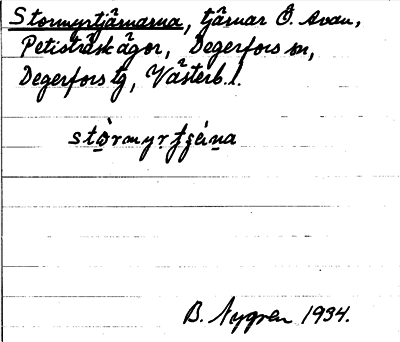 Stormyrtjärnarna, tjärnar Ö. Avan,
Petisträskägor, Degerfors sn,
Degerfors tg, Västerb. l.
B. Nygren 1934.